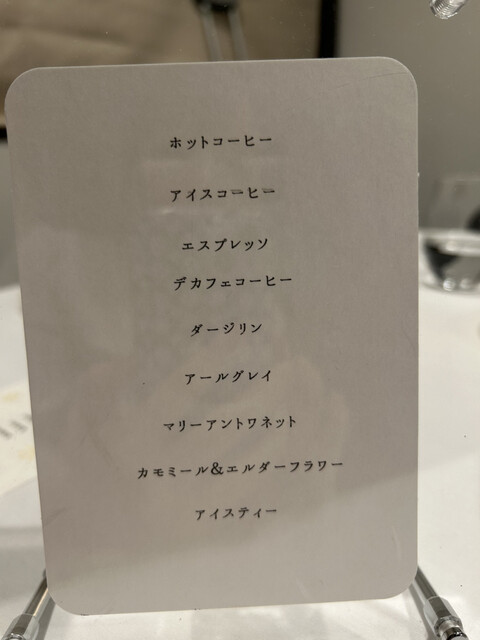 ホットコーヒー
アイスコーヒー
エスプレッソ
デカフェコーヒー
ダージリン
アールグレイ
マリーアントワネット
カモミール&エルダーフラワー
アイスティー